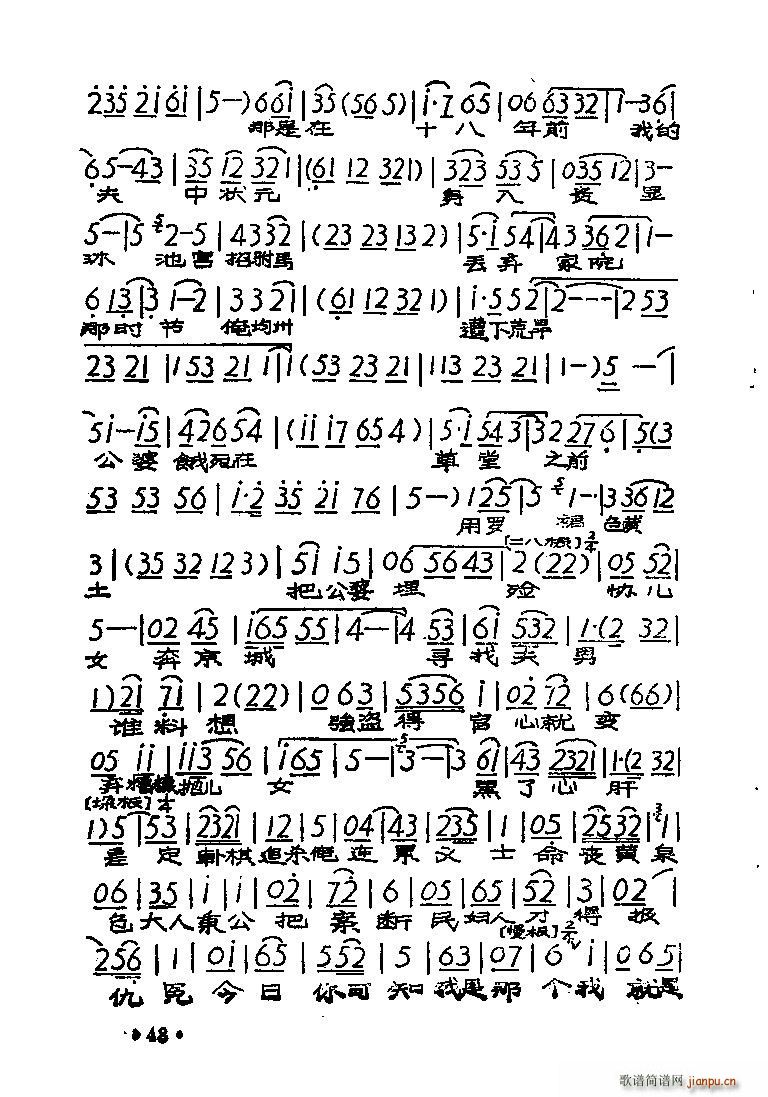 2̇3̇5̇ 2̇1̇6i̇ | 5—) 66i̇ | 35 (565) | i̇·7 65 | 06 6332 | 1—36 |
那是在 十八 年前 我的
65—43 | 35 12 321 | (61 12 321) | 323 535 | 035 12 | 3—
夫 中状元 身入 贵显
5—|5 2—5 | 4332 | (23 23 132) | 5·i̇ 54|43362 | 1—
池宫招驸马 丢弃 家院
6 13|31—2 | 332 1 | (61 12 321) | i̇·552|2———|253
那时节 俺均州 遭下荒旱
23 21 | 153 21 1|1 (53 23 21 | 113 23 21 | 1—) 5 —
5i̇—i̇5 | 42654 | (i̇i̇ i̇7 654) | 5·i̇ 543|3227 6 | 5(3
公婆饿死在 草堂 之前
53 53 56 | i̇·2̇ 3̇5̇ 2̇i̇ 76 | 5—) 125|5 1—·|33612
用罗 色黄
3 | (35 32 123) | 51 i̇5 | 06 5643 | 2 (22) | 05 52
土 把公婆埋 殓 儿
5—| 02 45 | i̇65 55 | 4—|4 53 | 6i̇ 532 | 1·(2 32 |
女 奔京城 寻找夫男
1) 21 71 | 2(22) | 063 | 5356 i̇ | 02̇ 72̇ | 6 (66) |
谁料想 強盗得 官心就变
05 i̇i̇ | i̇i̇3 56 | i̇65 | 5—|3—|3 6i̇ | 43 2321 | 1·(2 32 |
儿女 黑了心肝
[垛板]
1) 5 | 53 | 2321 | 12 | 5 | 04 | 43 | 235 | 1 | 05 | 2532 | 1 |
差定韩棋追杀俺连累义士命丧黄泉
06 | 35 | i̇ | i̇ | 02̇ | 72̇ | 6 | 05 | 65 | 52 | 3 | 02
包大人秉公把案断民妇人才得报
[慢板]
256 | 1 | 0i̇ | 65 | 552 | 5 | 63 | 07 | 6 i̇ | 065 |
仇冤今日你可知我是那个我就是
•48•
歌谱简谱网 jianpu.cn